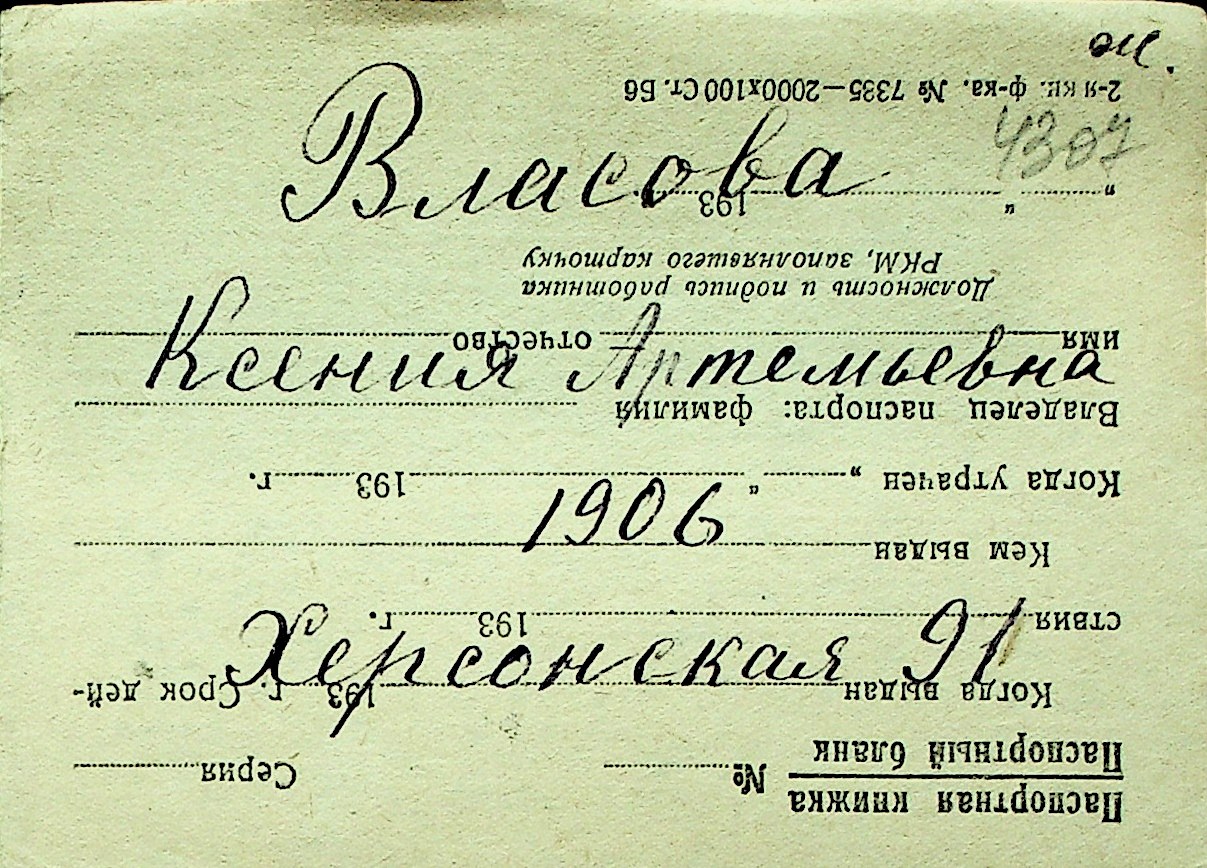 ж.
4307
Власова
Ксения Артемьевна
1906
Херсонская 91
Паспортная книжка
Паспортный бланк
№ Серия
Когда выдан 193 г. Срок дей-
ствия 193 г.
Кем выдан
Когда утрачен „ “ 193 г.
Владелец паспорта: фамилия
имя отчество
Должность и подпись работника
РКМ, заполнявшего карточку
„ “ 193
2-я кн. ф-ка. № 7385—2000х100 Ст. Б6